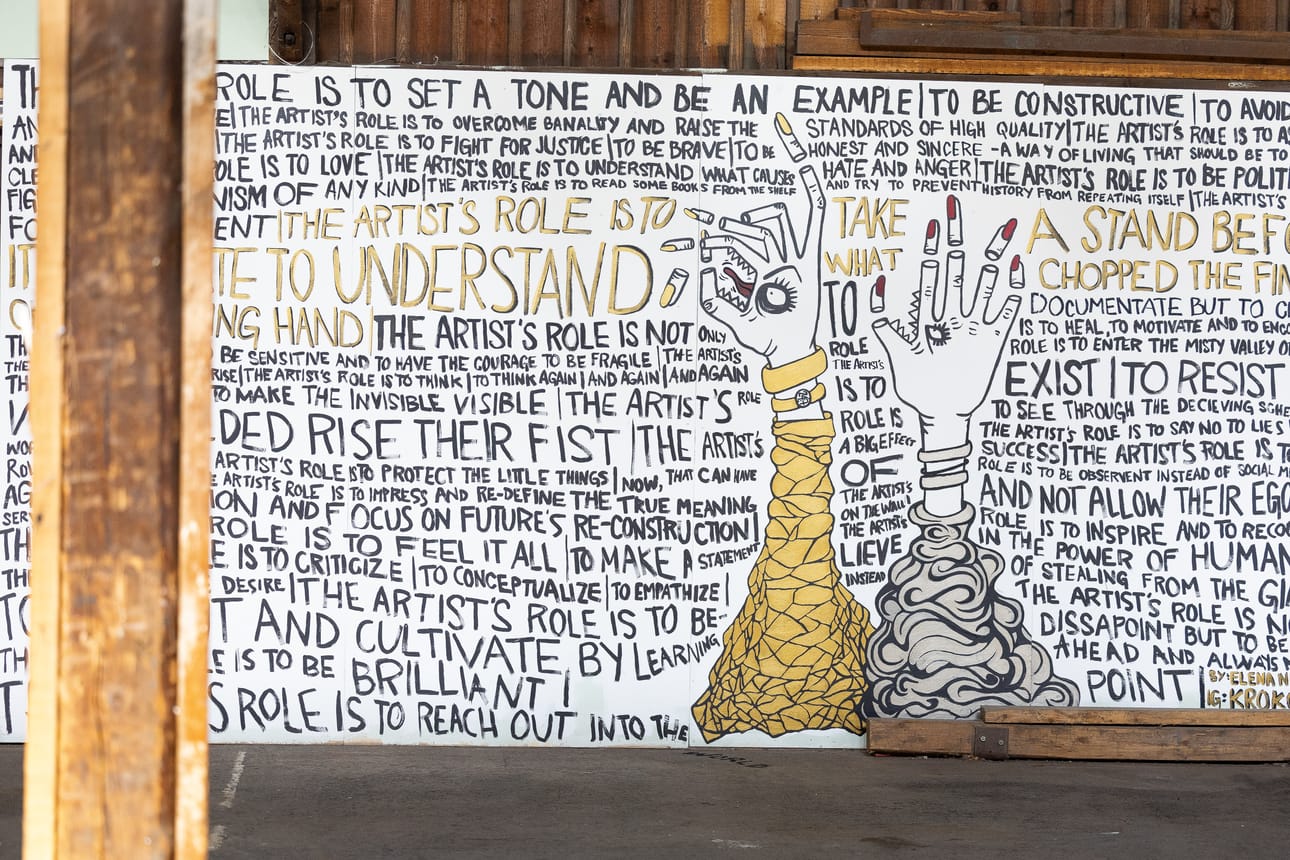 TH ROLE IS TO SET A TONE AND BE AN EXAMPLE | TO BE CONSTRUCTIVE | TO AVOID
AN E | THE ARTIST'S ROLE IS TO OVERCOME BANALITY AND RAISE THE STANDARDS OF HIGH QUALITY | THE ARTIST'S ROLE IS TO
AND | THE ARTIST'S ROLE IS TO FIGHT FOR JUSTICE | TO BE BRAVE | TO BE HONEST AND SINCERE - A WAY OF LIVING THAT SHOULD BE TO
CLE OLE IS TO LOVE | THE ARTIST'S ROLE IS TO UNDERSTAND WHAT CAUSES HATE AND ANGER | THE ARTIST'S ROLE IS TO BE POLITI
FIG NISM OF ANY KIND | THE ARTIST'S ROLE IS TO READ SOME BOOKS FROM THE SHELF AND TRY TO PREVENT HISTORY FROM REPEATING ITSELF | THE ARTIST'S
FO ENT | THE ARTIST'S ROLE IS TO TAKE A STAND BEFO
IT TE TO UNDERSTAND WHAT CHOPPED THE FIN
NG HAND | THE ARTIST'S ROLE IS NOT ONLY TO DOCUMENTATE BUT TO
BE SENSITIVE AND TO HAVE THE COURAGE TO BE FRAGILE | THE ARTIST'S ROLE IS TO HEAL, TO MOTIVATE AND TO ENCO
RISE | THE ARTIST'S ROLE IS TO THINK | TO THINK AGAIN | AND AGAIN | AND AGAIN THE ARTIST'S ROLE IS TO ENTER THE MISTY VALLEY
TO MAKE THE INVISIBLE VISIBLE | THE ARTIST'S ROLE IS TO EXIST | TO RESIST
DED RISE THEIR FIST | THE ARTIST'S ROLE IS TO SEE THROUGH THE DECIEVING SCHE
ARTIST'S ROLE IS TO PROTECT THE LITTLE THINGS | NOW, THAT CAN HAVE A BIG EFFECT THE ARTIST'S ROLE IS TO SAY NO TO LIES
ARTIST'S ROLE IS TO IMPRESS AND RE-DEFINE THE TRUE MEANING OF SUCCESS | THE ARTIST'S ROLE IS T
ION AND FOCUS ON FUTURE'S RE-CONSTRUCTION | THE ARTIST'S ROLE IS TO BE OBSERVENT INSTEAD OF SOCIAL
ROLE IS TO FEEL IT ALL | TO MAKE A STATEMENT ON THE WALL AND NOT ALLOW THEIR EGO
E IS TO CRITICIZE | TO CONCEPTUALIZE | TO EMPATHIZE | THE ARTIST'S ROLE IS TO INSPIRE AND TO RECO
DESIRE | THE ARTIST'S ROLE IS TO BE- LIEVE IN THE POWER OF HUMAN
T AND CULTIVATE BY LEARNING INSTEAD OF STEALING FROM THE GIA
E IS TO BE BRILLIANT | THE ARTIST'S ROLE IS NO
DISSAPOINT BUT TO BE
S ROLE IS TO REACH OUT INTO THE AHEAD AND ALWAYS
WORLD POINT |
BY: ELENA N
IG: KROK